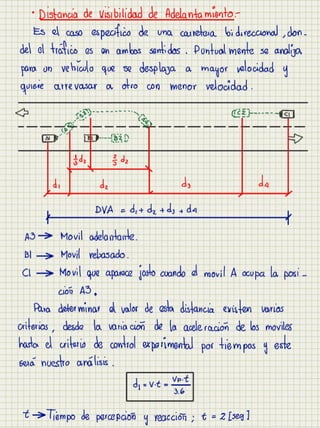 · Distancia de Visibilidad de Adelantamiento:-
Es el caso especifico de una carretera bidireccional, don-
del el tráfico es en ambos sentidos. Puntualmente se analiza
para un vehículo que se desplaza a mayor velocidad y
quiere arrevasar a otro con menor velocidad.
C1
1/3 d2
2/3 d2
d1
d2
d3
d4
DVA = d1 + d2 + d3 + d4
A3 → Movil adelantante.
B1 → Movil rebasado.
C1 → Movil que aparece justo cuando el movil A ocupa la posi-
ción A3.
Para determinar el valor de esta distancia existen varios
criterios, desde la variación de la aceleración de los moviles
hasta el criterio de control experimental por tiempos y este
será nuestro análisis.
d1 = V·t = Vp·t / 3.6
t → Tiempo de percepción y reacción ; t = 2 [seg]